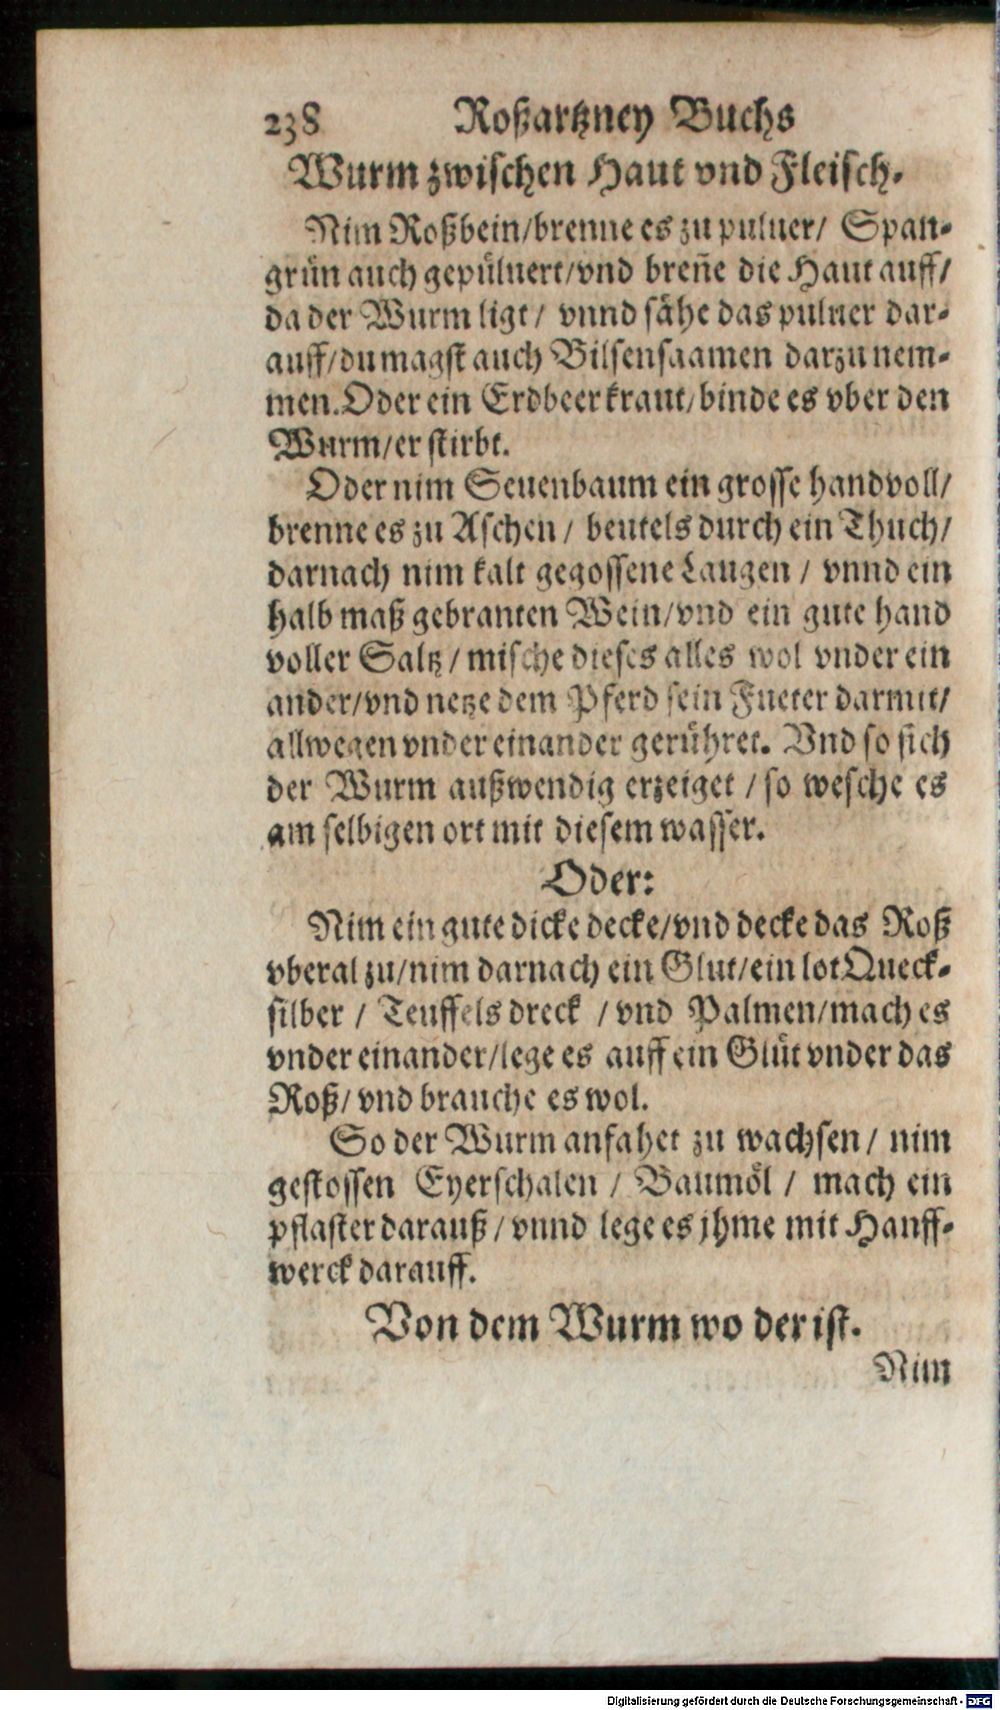 238 Roßartzney Buchs
Wurm zwischen Haut vnd Fleisch.
Nim Roßbein/brenne es zu puluer/ Span-
grün auch gepüluert/vnd breñe die Haut auff/
da der Wurm ligt/ vnnd sähe das puluer dar-
auff/du magst auch Bilsensaamen darzu nem-
men. Oder ein Erdbeerkraut/binde es vber den
Wurm/er stirbt.
Oder nim Seuenbaum ein grosse handvoll/
brenne es zu Aschen / beutels durch ein Thuch/
darnach nim kalt gegossene Laugen / vnnd ein
halb maß gebranten Wein/vnd ein gute hand
voller Saltz / mische dieses alles wol vnder ein
ander/vnd netze dem Pferd sein Fueter darmit/
allwegen vnder einander gerühret. Vnd so sich
der Wurm außwendig erzeiget / so wesche es
am selbigen ort mit diesem wasser.
Oder:
Nim ein gute dicke decke/vnd decke das Roß
vberal zu/nim darnach ein Glut/ein lot Queck-
silber / Teuffels dreck / vnd Palmen/mach es
vnder einander/lege es auff ein Glüt vnder das
Roß/ vnd brauche es wol.
So der Wurm anfahet zu wachsen / nim
gestossen Eyerschalen / Baumöl / mach ein
pflaster darauß / vnnd lege es jhme mit Hanff-
werck darauff.
Von dem Wurm wo der ist.
Nim
Digitalisierung gefördert durch die Deutsche Forschungsgemeinschaft - DFG